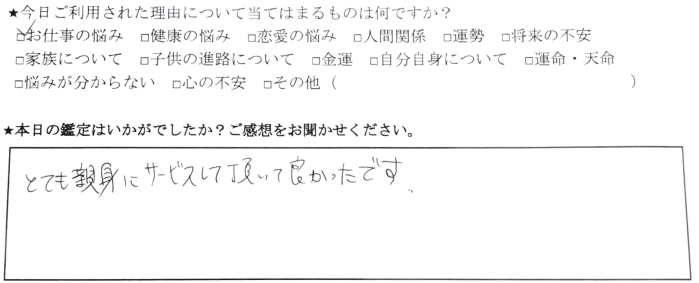 ★今日ご利用された理由について当てはまるものは何ですか？
☑お仕事の悩み □健康の悩み □恋愛の悩み □人間関係 □運勢 □将来の不安
□家族について □子供の進路について □金運 □自分自身について □運命・天命
□悩みが分からない □心の不安 □その他（ ）
★本日の鑑定はいかがでしたか？ご感想をお聞かせください。
とても親身にサービスして頂いて良かったです。